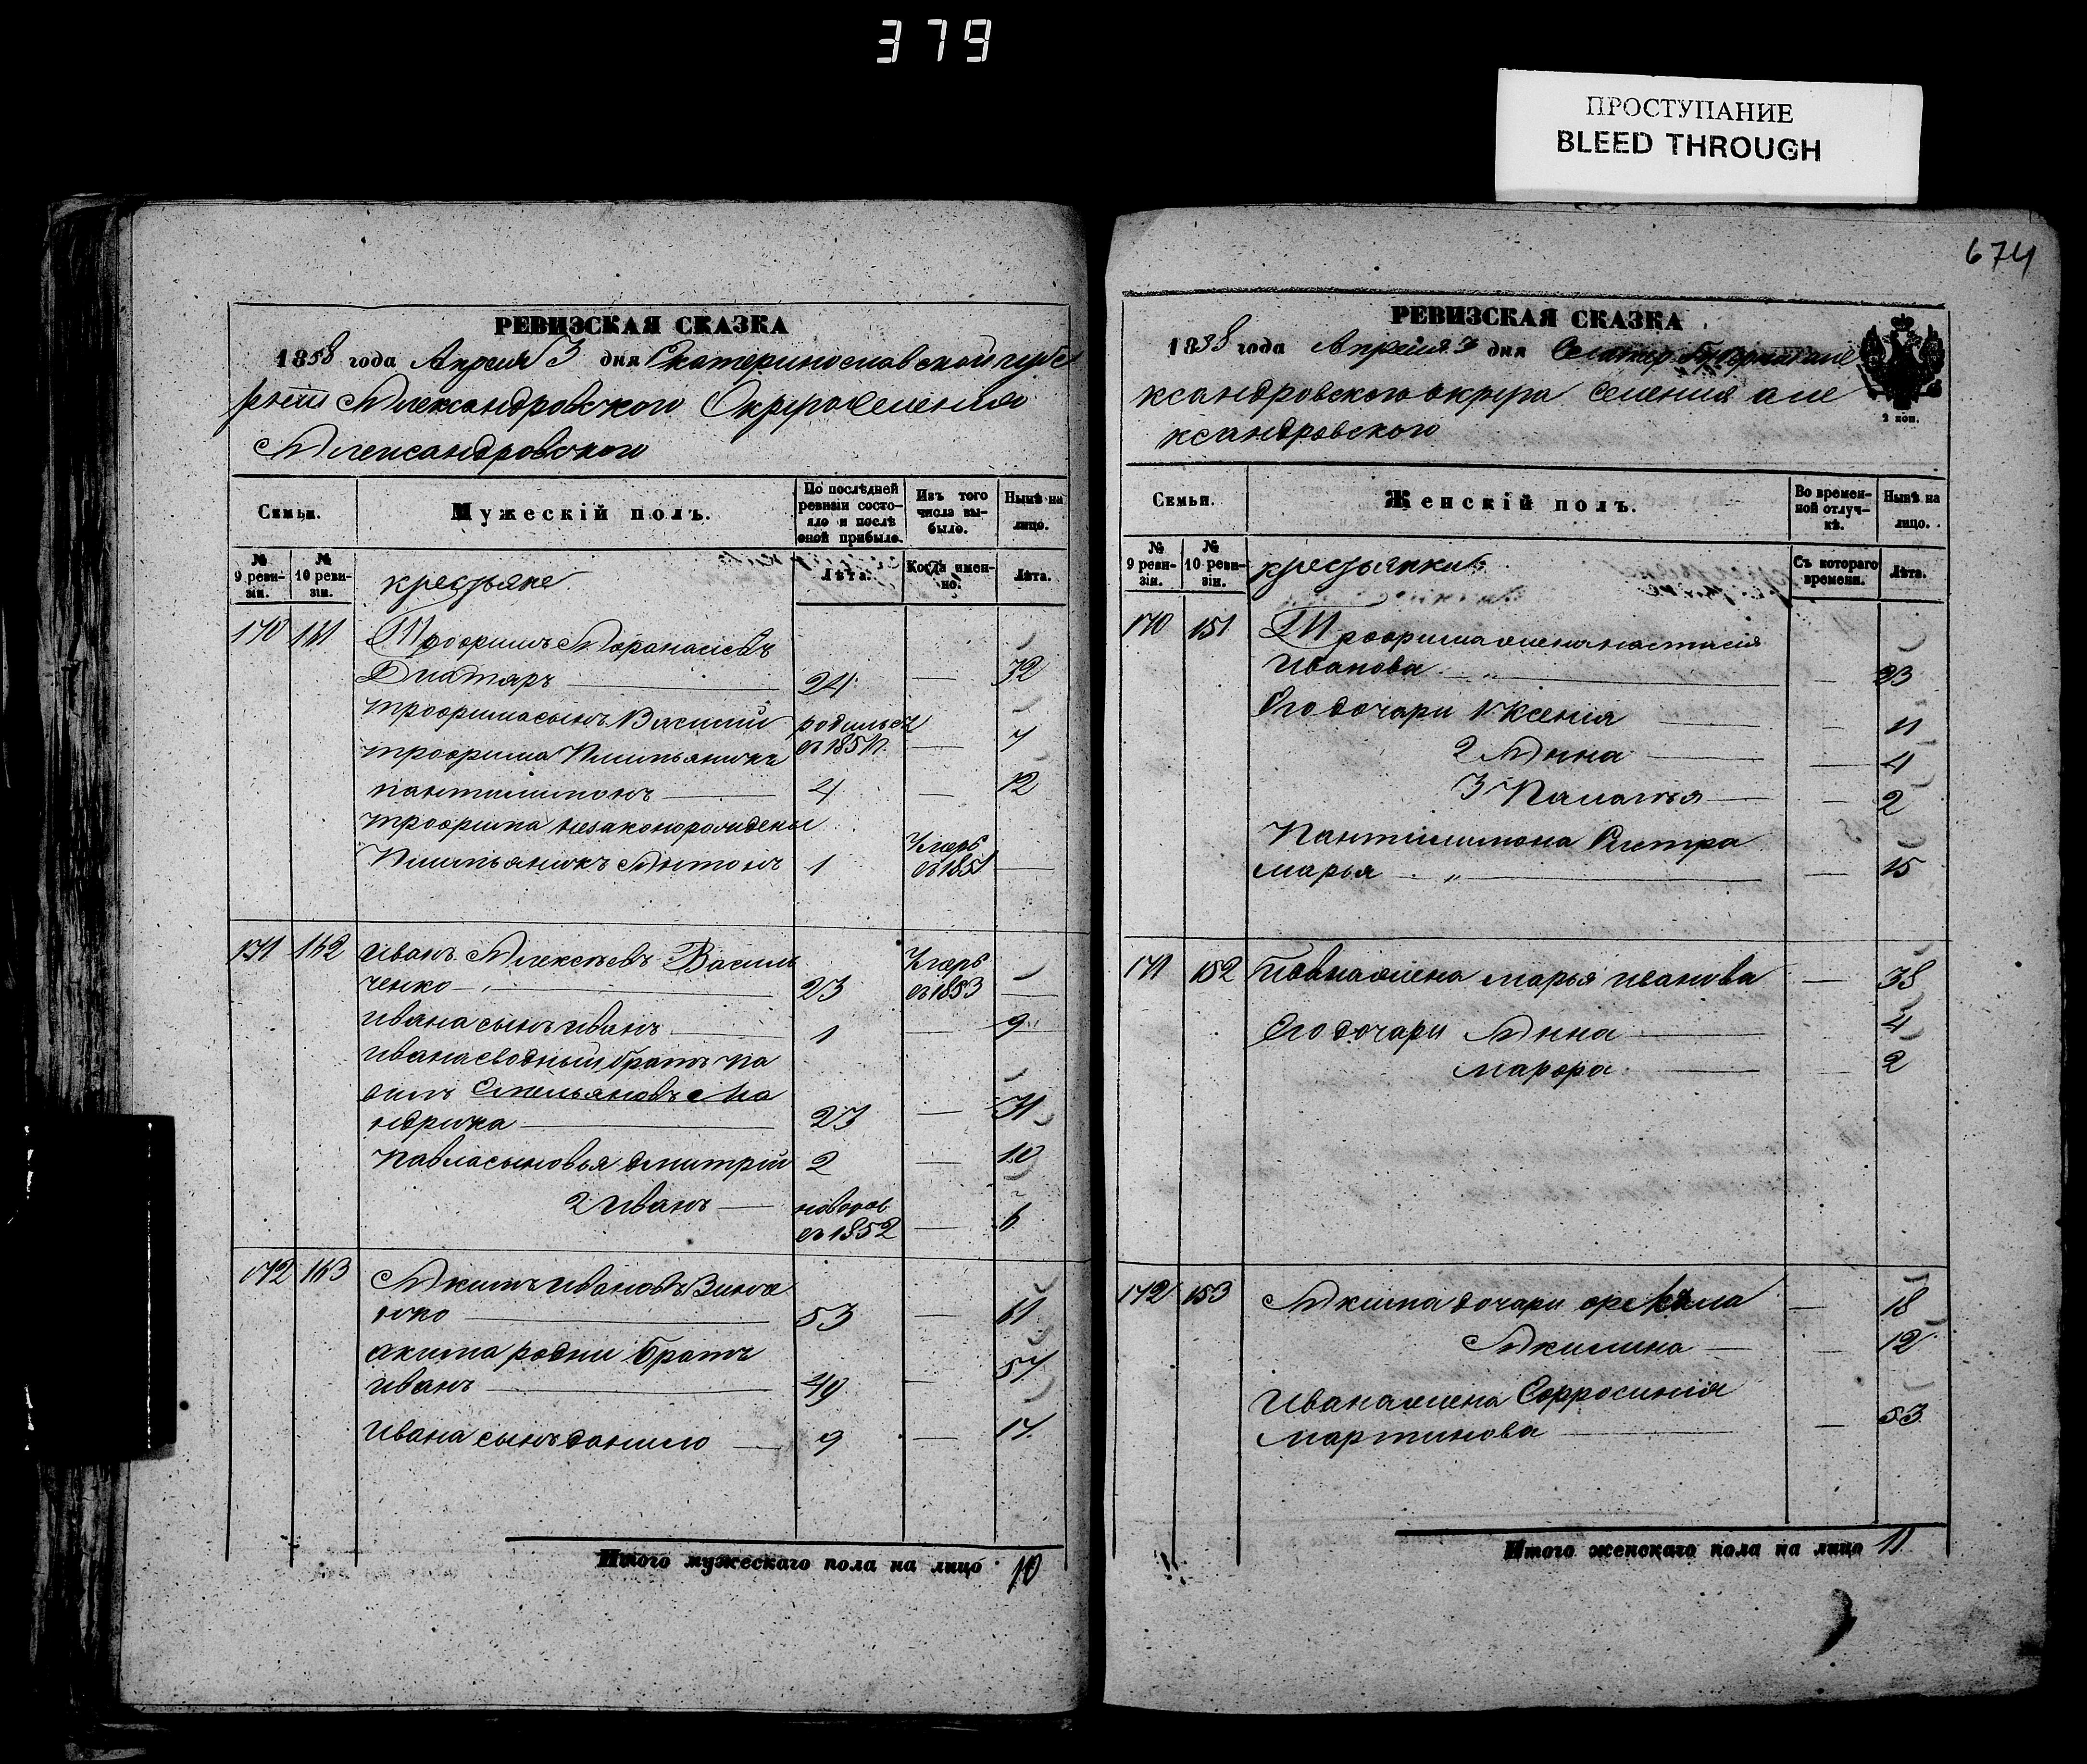 379
ПРОСТУПАНИЕ
BLEED THROUGH
674
РЕВИЗСКАЯ СКАЗКА
1858 года Апреля 3 дня Екатеринославской губе
рнии Александровского Округа Селения
Александровского
Семьи.
Мужескій полъ.
По послѣдней ревизіи состо-
яло и послѣ оной прибыло.
Изъ того числа вы-
было.
Нынѣ на лицо.
№ 9 реви-
зіи.
№ 10 реви-
зіи.
крестьяне
Лѣта.
Когда имен-
но.
Лѣта.
170 161 Трофимъ Афанасіевъ
24 — 32
трофима сынъ Василий родилься
въ 1851 — 7
трофима Племьяникъ
пантилимонъ — 4 — 12
трофима незаконорождены
Племьяникъ Антонъ 1 Умеръ въ 1851 —
171 162 Иванъ Алексѣевъ Василь
ченко — 23 Умеръ въ 1853 —
Ивана сынъ иванъ — 1 — 9
Ивана сводный братъ па
Емельяновъ Ма
ндрика — 23 — 31
павла сыновья дмитрий 2 — 10
2 Иванъ — новорож
въ 1852 — 6
172 163 Акимъ Ивановъ Зинче
нко — 53 — 61
акима родни Братъ
иванъ — 49 — 57
Ивана сынъ данило — 9 — 17
Итого мужескаго пола на лицо 10
РЕВИЗСКАЯ СКАЗКА
1858 года Апреля 3 дня Екатер. Губернии але
ксандровского округа Селения але
ксандровского
2 коп.
Семьи.
Женскій полъ.
Во времен-
ной отлуч-
кѣ.
Нынѣ на лицо.
№ 9 реви-
зіи.
№ 10 реви-
зіи.
крестьянки
Съ котораго времени.
Лѣта.
170 151 Трофима жена настасія
Иванова — — 33
Его дочари 1 Ксенія — — 11
2 Анна — — 4
3 Палагея — — 2
Пантилимона Сестра
марья — — 15
171 152 Ивана жена марья иванова — 38
Его дочари Анна — — 4
марфа — — 2
172 153 Акима дочари фекла — 18
Акилина — — 12
Ивана жена Евфросинія
мартинова — — 53
Итого женскаго пола на лицо 11